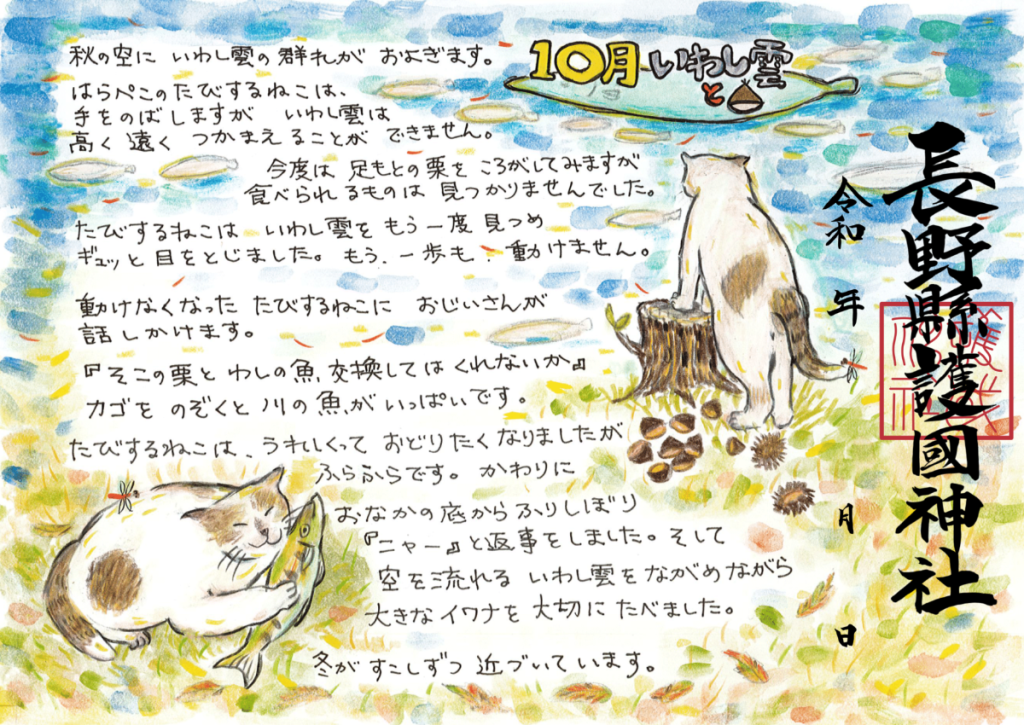 10月 いわし雲
と
秋の空に いわし雲の群れが およぎます。
はらぺこのたびするねこは、
手をのばしますが いわし雲は
高く遠く つかまえることが できません。
今度は 足もとの栗を ころがしてみますが
食べられるものは 見つかりませんでした。
たびするねこは いわし雲を もう一度見つめ
ギュッと目をとじました。もう、一歩も、動けません。
動けなくなった たびするねこに おじいさんが
話しかけます。
『そこの栗と わしの魚 交換してはくれないか』
カゴを のぞくと 川の魚が いっぱいです。
たびするねこは、うれしくって おどりたくなりましたが
ふらふらです。かわりに
おなかの底からふりしぼり
『ニャー』と返事をしました。そして
空を流れる いわし雲をながめながら
大きなイワナを 大切に たべました。
冬が すこしずつ 近づいています。
長野縣護國神社
令和 年 月 日